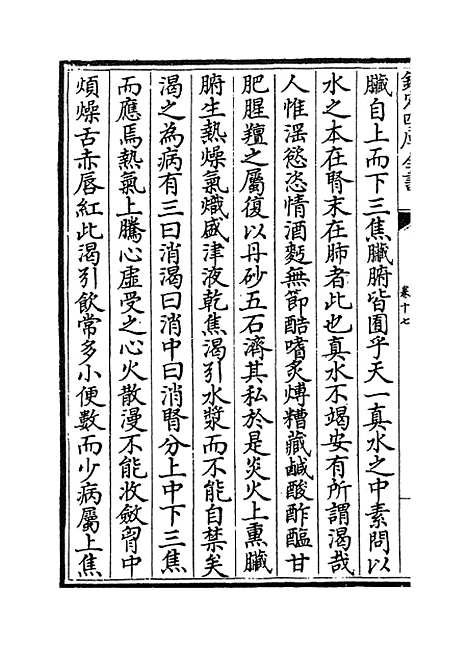 欽定四庫全書
卷十七
臟自上而下三焦臟腑皆囿乎天一真水之中素問以
水之本在腎末在肺者此也真水不竭安有所謂渴哉
人惟滛慾恣情酒麪無節酷嗜炙煿糟藏鹹酸酢醢甘
肥腥羶之屬復以丹砂五石濟其私於是炎火上熏臟
腑生熱燥氣熾盛津液乾焦渴引水漿而不能自禁矣
渴之為病有三曰消渴曰消中曰消腎分上中下三焦
而應焉熱氣上騰心虛受之心火散漫不能收斂胷中
煩燥舌赤唇紅此渴引飲常多小便數而少病屬上焦